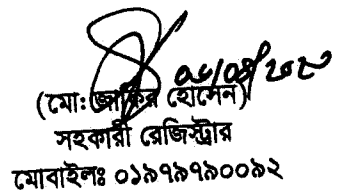 (মো: জাকির হোসেন)
সহকারী রেজিস্ট্রার
মোবাইলঃ ০১৯৭৯৭৯০০৯২